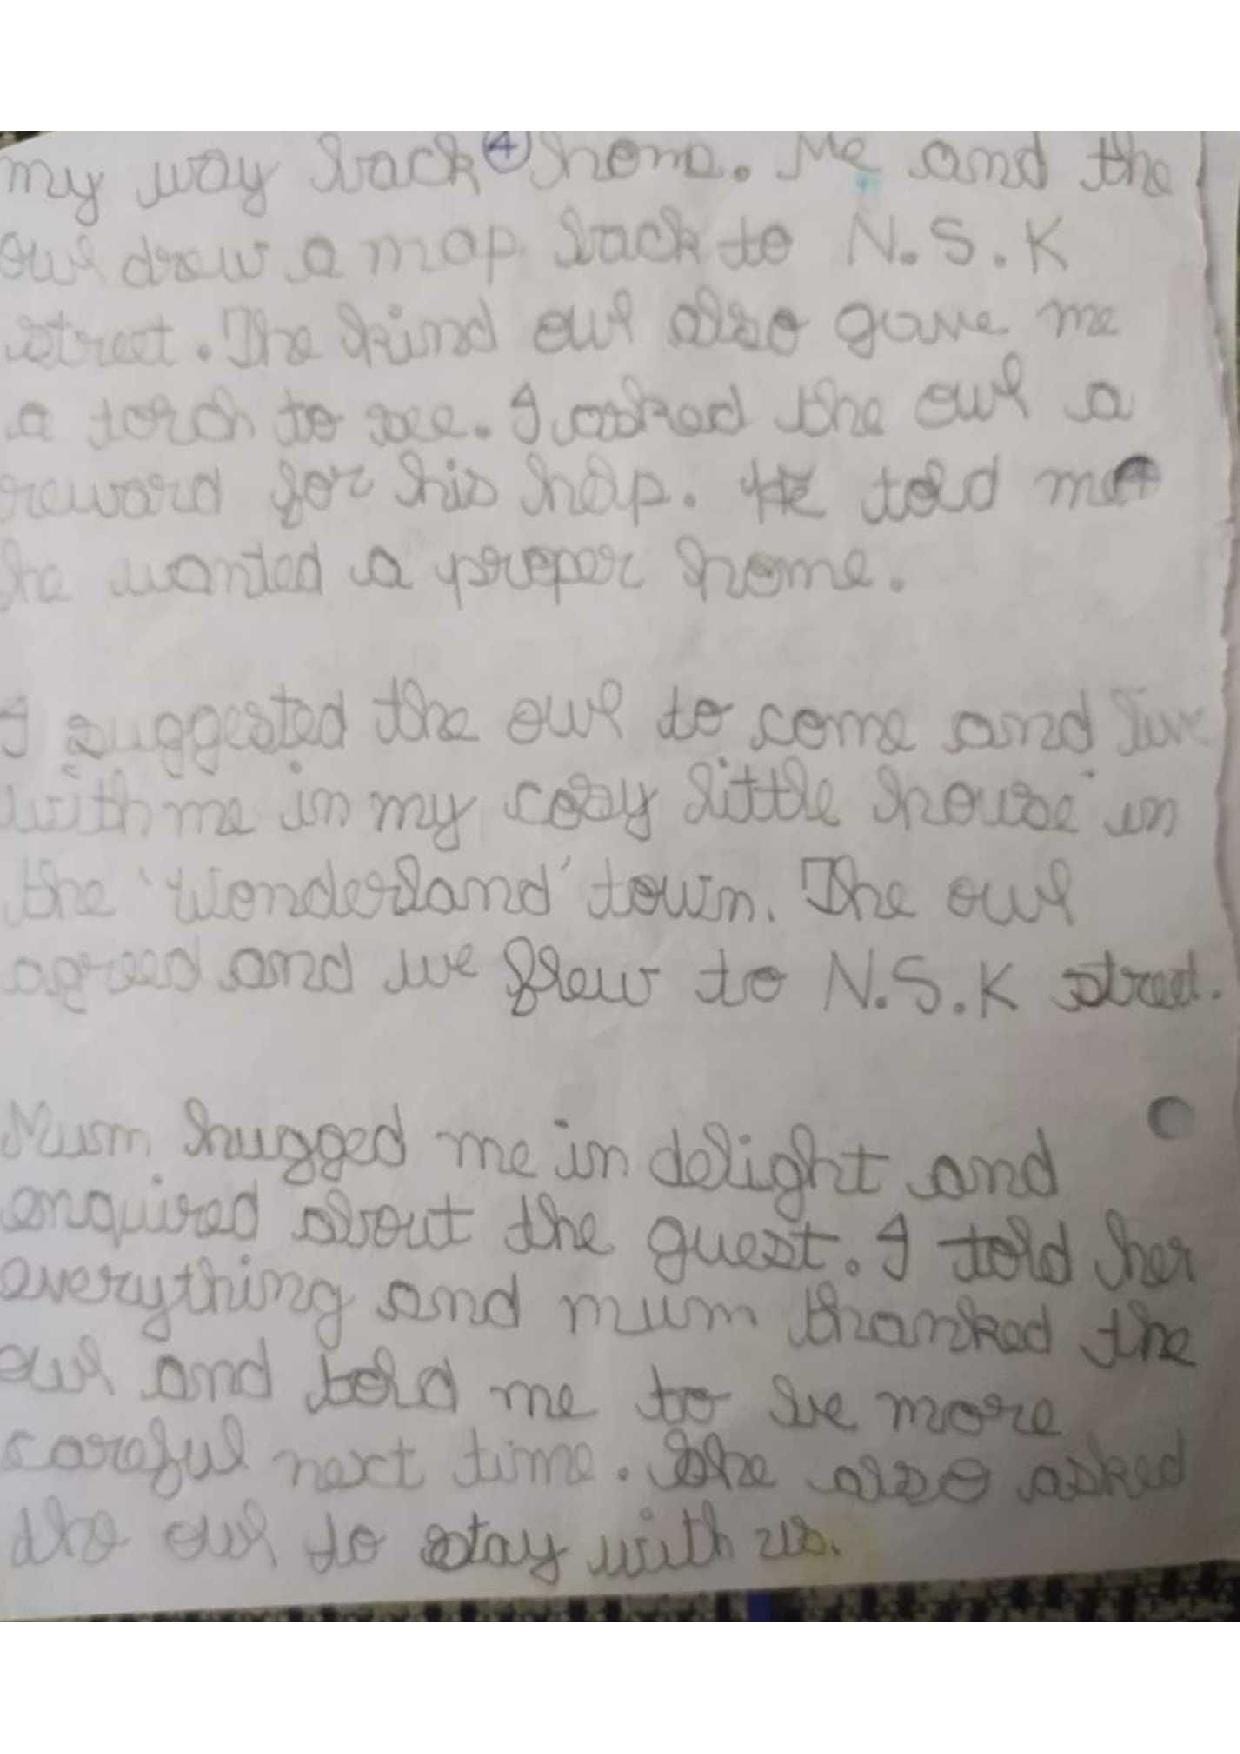 my way back ④ home. Me and the
owl drew a map back to N.S.K
street. The kind owl also gave me
a torch to see. I asked the owl a
reward for his help. He told me
he wanted a proper home.
I suggested the owl to come and live
with me in my cozy little house in
the 'Wonderland' town. The owl
agreed and we flew to N.S.K street.
Mum hugged me in delight and
enquired about the guest. I told her
everything and mum thanked the
owl and told me to be more
careful next time. She also asked
the owl to stay with us.